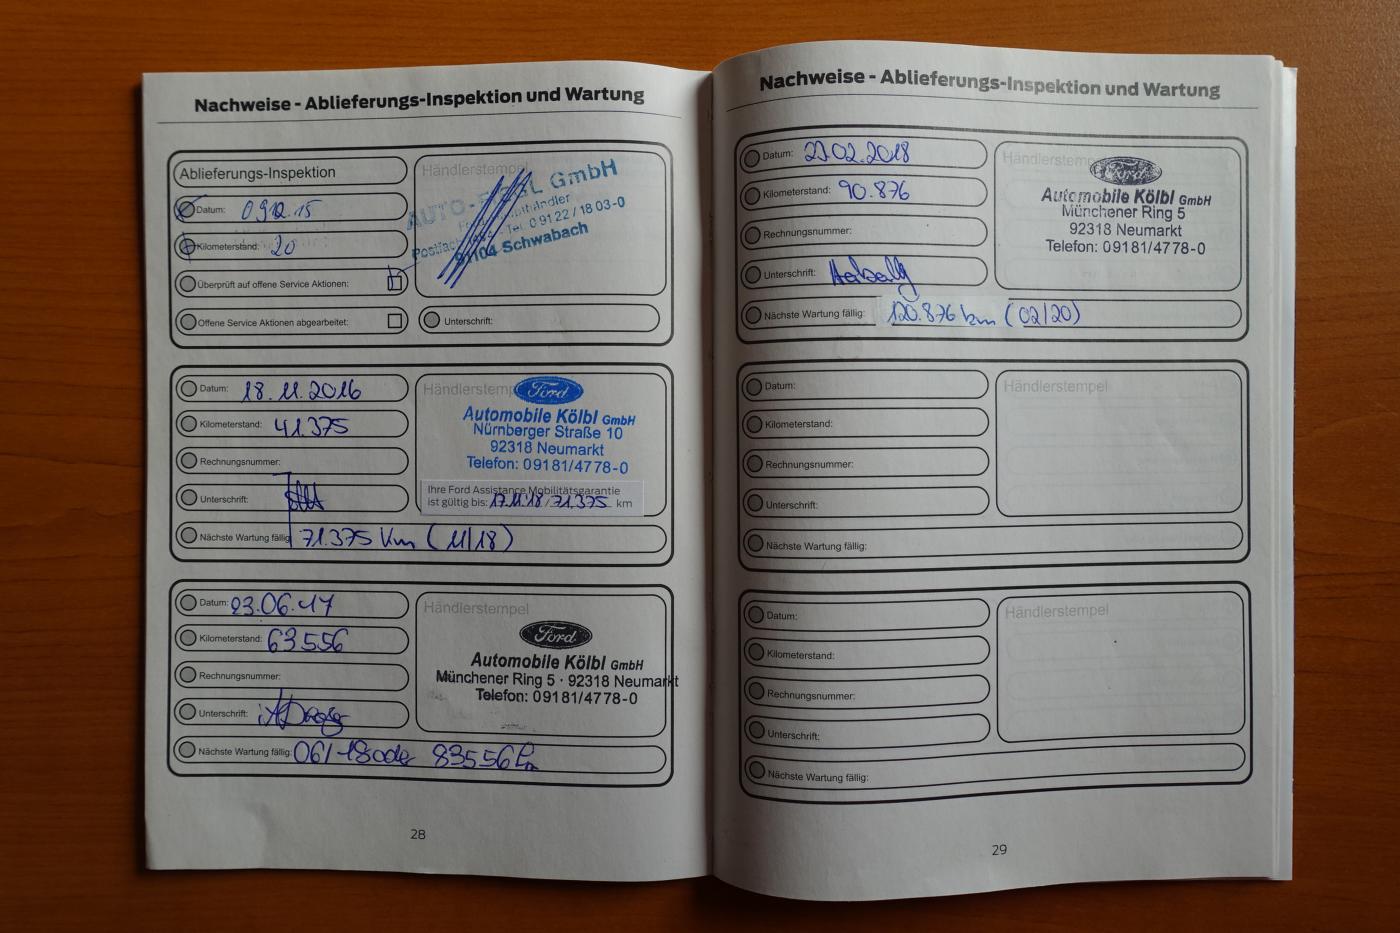 Nachweise - Ablieferungs-Inspektion und Wartung
Ablieferungs-Inspektion
Datum: 09.12.15
Kilometerstand: 20
Überprüft auf offene Service Aktionen:
Offene Service Aktionen abgearbeitet:
Händlerstempel
GmbH
Tel. 0 91 22 / 18 03-0
91104 Schwabach
Unterschrift:
Datum: 18.11.2016
Kilometerstand: 41.375
Rechnungsnummer:
Unterschrift:
Nächste Wartung fällig: 71.375 Km (11/18)
Händlerstempel
Ford
Automobile Kölbl GmbH
Nürnberger Straße 10
92318 Neumarkt
Telefon: 09181/4778-0
Ihre Ford Assistance Mobilitätsgarantie
ist gültig bis: 17.11.18/71.375 km
Datum: 23.06.17
Kilometerstand: 63556
Rechnungsnummer:
Unterschrift:
Nächste Wartung fällig: 06/18 oder 83556 km
Händlerstempel
Ford
Automobile Kölbl GmbH
Münchener Ring 5 · 92318 Neumarkt
Telefon: 09181/4778-0
28
Nachweise - Ablieferungs-Inspektion und Wartung
Datum: 02.2018
Kilometerstand: 90.876
Rechnungsnummer:
Unterschrift:
Nächste Wartung fällig: 120.876 km (02/20)
Händlerstempel
Ford
Automobile Kölbl GmbH
Münchener Ring 5
92318 Neumarkt
Telefon: 09181/4778-0
Datum:
Kilometerstand:
Rechnungsnummer:
Unterschrift:
Nächste Wartung fällig:
Händlerstempel
Datum:
Kilometerstand:
Rechnungsnummer:
Unterschrift:
Nächste Wartung fällig:
Händlerstempel
29